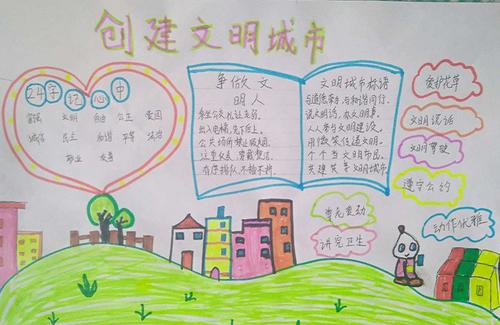 创建文明城市
24字记心中
富强 文明 自由 公正 爱国
诚信 民主 和谐 平等 法治
敬业 友善
争做文
明人
出入电梯,先下后上。
公共场所禁止吸烟,
注重仪表,穿戴整洁。
有序排队,不拾不挤。
文明城市标语
与道德牵手与和谐同行。
说文明话,办文明事。
人人参与文明建设。
用微笑传递文明。
个个当文明市民。
共建共享文明城市。
爱护花草
文明说话
文明驾驶
遵守公约
动作优雅
尊老爱幼
讲究卫生